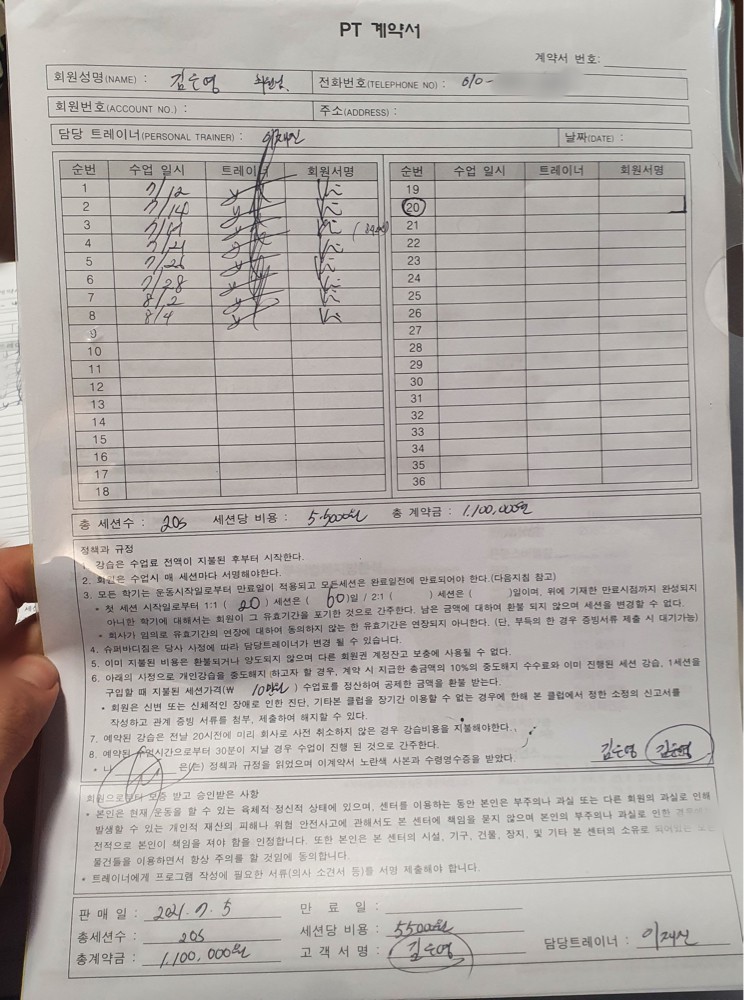 PT 계약서
계약서 번호:
회원성명(NAME) : 김은영 전화번호(TELEPHONE NO) : 010-
회원번호(ACCOUNT NO.) : 주소(ADDRESS) :
담당 트레이너(PERSONAL TRAINER) : 날짜(DATE) :
순번 수업 일시 트레이너 회원서명 순번 수업 일시 트레이너 회원서명
1 7/12 19
2 7/14 20
3 21
4 7/21 22
5 23
6 7/28 24
7 8/2 25
8 8/4 26
9 27
10 28
11 29
12 30
13 31
14 32
15 33
16 34
17 35
18 36
총 세션수 : 20S 세션당 비용 : 5.5000원 총 계약금 : 1,100,000원
정책과 규정
1. 강습은 수업료 전액이 지불된 후부터 시작한다.
2. 회원은 수업시 매 세션마다 서명해야한다.
3. 모든 학기는 운동시작일로부터 만료일이 적용되고 모든세션은 완료일전에 만료되어야 한다.(다음지침 참고)
• 첫 세션 시작일로부터 1:1 ( 20 ) 세션은 ( 60 )일 / 2:1 ( )세션은 ( )일이며, 위에 기재한 만료시점까지 완성되지
아니한 학기에 대해서는 회원이 그 유효기간을 포기한 것으로 간주한다. 남은 금액에 대하여 환불 되지 않으며 세션을 변경할 수 없다.
• 회사가 임의로 유효기간의 연장에 대하여 동의하지 않는 한 유효기간은 연장되지 아니한다. (단, 부득의 한 경우 증빙서류 제출 시 대기가능)
4. 슈퍼바디짐은 당사 사정에 따라 담당트레이너가 변경 될 수 있습니다.
5. 이미 지불된 비용은 환불되거나 양도되지 않으며 다른 회원권 계정잔고 보충에 사용될 수 없다.
6. 아래의 사정으로 개인강습을 중도해지 하고자 할 경우, 계약 시 지급한 총금액의 10%의 중도해지 수수료와 이미 진행된 세션 강습, 1세션을
구입할 때 지불된 세션가격(₩ 10만원 ) 수업료를 정산하여 공제한 금액을 환불 받는다.
• 회원은 신변 또는 신체적인 장애로 인한 진단, 기타본 클럽을 장기간 이용할 수 없는 경우에 한해 본 클럽에서 정한 소정의 신고서를
작성하고 관계 증빙 서류를 첨부, 제출하여 해지할 수 있다.
7. 예약된 강습은 전날 20시전에 미리 회사로 사전 취소하지 않은 경우 강습비용을 지불해야한다.
8. 예약된 수업시간으로부터 30분이 지날 경우 수업이 진행 된 것으로 간주한다.
• 나 은(는) 정책과 규정을 읽었으며 이계약서 노란색 사본과 수령영수증을 받았다. 김은영 김은영
회원으로부터 보증 받고 승인받은 사항
• 본인은 현재 운동을 할 수 있는 육체적 정신적 상태에 있으며, 센터를 이용하는 동안 본인은 부주의나 과실 또는 다른 회원의 과실로 인해
발생할 수 있는 개인적 재산의 피해나 위험 안전사고에 관해서도 본 센터에 책임을 묻지 않으며 본인의 부주의나 과실로 인한
전적으로 본인이 책임을 져야 함을 인정합니다. 또한 본인은 본 센터의 시설, 기구, 건물, 장치, 및 기타 본 센터의 소유로
물건들을 이용하면서 항상 주의를 할 것임에 동의합니다.
• 트레이너에게 프로그램 작성에 필요한 서류(의사 소견서 등)를 서명 제출해야 합니다.
판 매 일 : 2021. 7. 5 만 료 일 :
총세션수 : 20S 세션당 비용 : 55000원
총계약금 : 1,100,000원 고 객 서 명 : 김은영 담당트레이너 :